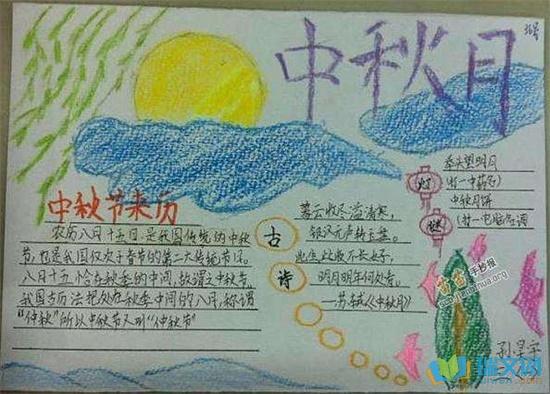 中秋月
中秋节来历
农历八月十五日,是我国传统的中秋
节,也是我国仅次于春节的第二大传统节日。
八月十五恰在秋季的中间,故谓之中秋节。
我国古历法把处在秋季中间的八月,称谓
"仲秋"所以中秋节又叫"仲秋节"
古诗
暮云收尽溢清寒,
银汉无声转玉盘。
此生此夜不长好,
明月明年何处看。
—苏轼《中秋月》
灯谜
举头望明月
(打一中药名)
中秋月饼
(打一电脑名词)
手抄报
瑞文网